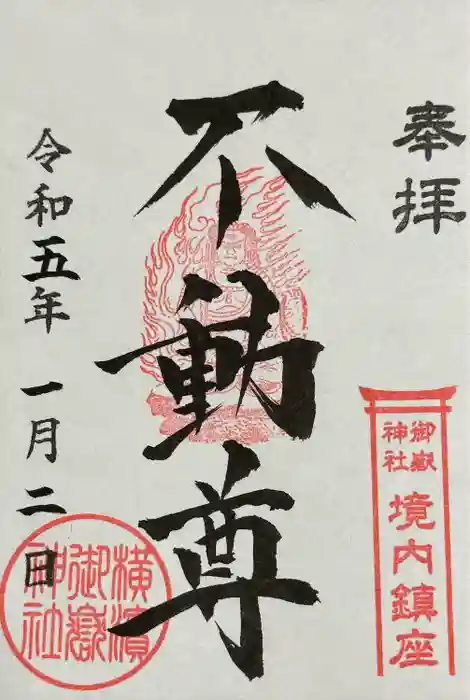 奉拝
御嶽
神社
境内鎮座
不動尊
令和五年 一月二日
横濱
御嶽
神社